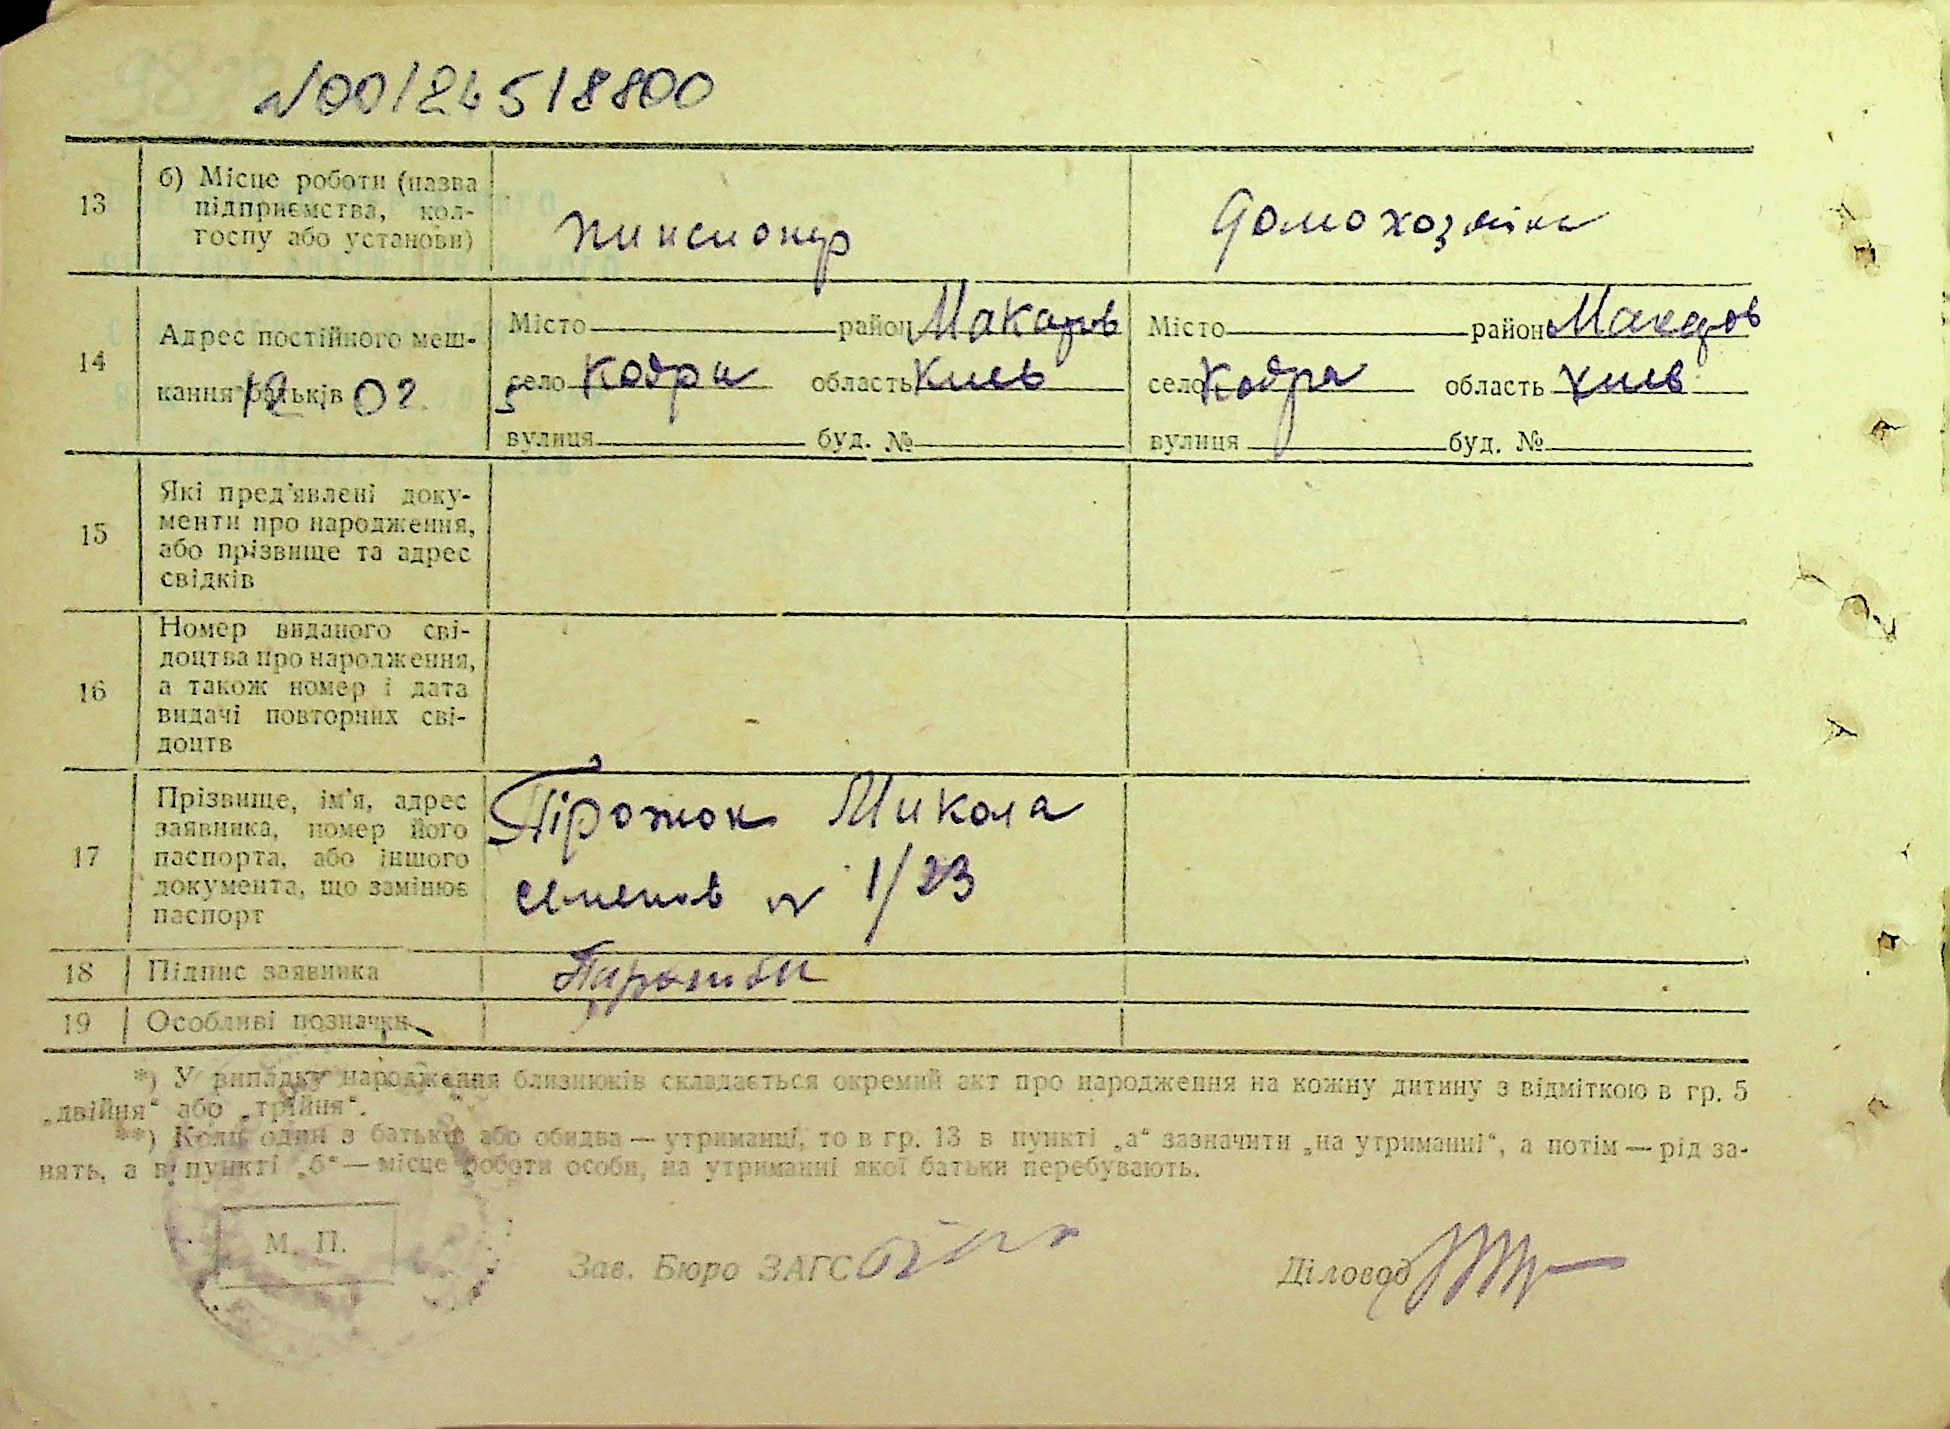 №00124518800
13
б) Місце роботи (назва
підприємства, кол-
госпу або установи)
пинсионер
домохозяйка
14
Адрес постійного меш-
кання батьків
12 02
Місто район Макаров
село Кодра область Киев
вулиця буд. №
Місто район Макаров
село Кодра область Киев
вулиця буд. №
15
Які пред'явлені доку-
менти про народження,
або прізвище та адрес
свідків
16
Номер виданого сві-
доцтва про народження,
а також номер і дата
видачі повторних сві-
доцтв
17
Прізвище, ім'я, адрес
заявника, номер його
паспорта, або іншого
документа, що замінює
паспорт
Пірожок Микола
семенов № 1/23
18 Підпис заявника
19 Особливі позначки
*) У випадку народження близнюків складається окремий акт про народження на кожну дитину з відміткою в гр. 5
„двійня“ або „трійня“.
**) Коли один з батьків або обидва — утриманці, то в гр. 13 в пункті „а“ зазначити „на утриманні“, а потім — рід за-
нять, а в пункті „б“ — місце роботи особи, на утриманні якої батьки перебувають.
М. П.
Зав. Бюро ЗАГС
Діловод